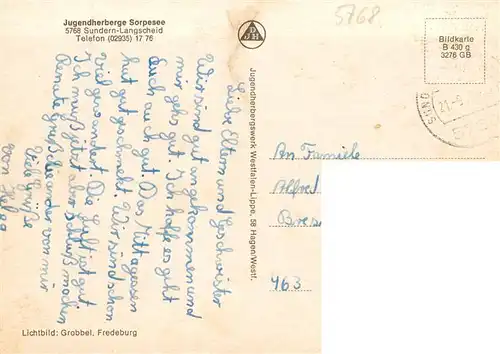 Jugendherberge Sorpesee
5768 Sundern-Langscheid
Telefon (02935) 17 76
5768
Bildkarte
B 430 g
3276 GB
Liebe Eltern und Geschwister
Wir sind gut angekommen und
mir gehts gut. Ich hoffe es geht
Euch auch gut. Das Mittagessen
hat gut geschmeckt. Wir sind schon
viel gewandert. Die Luft ist gut.
Ich muß jetzt aber schluß machen
viele Grüße
von
Jugendherbergswerk Westfalen-Lippe, 58 Hagen/Westf.
An Familie
Alfred
463
Lichtbild: Grobbel, Fredeburg